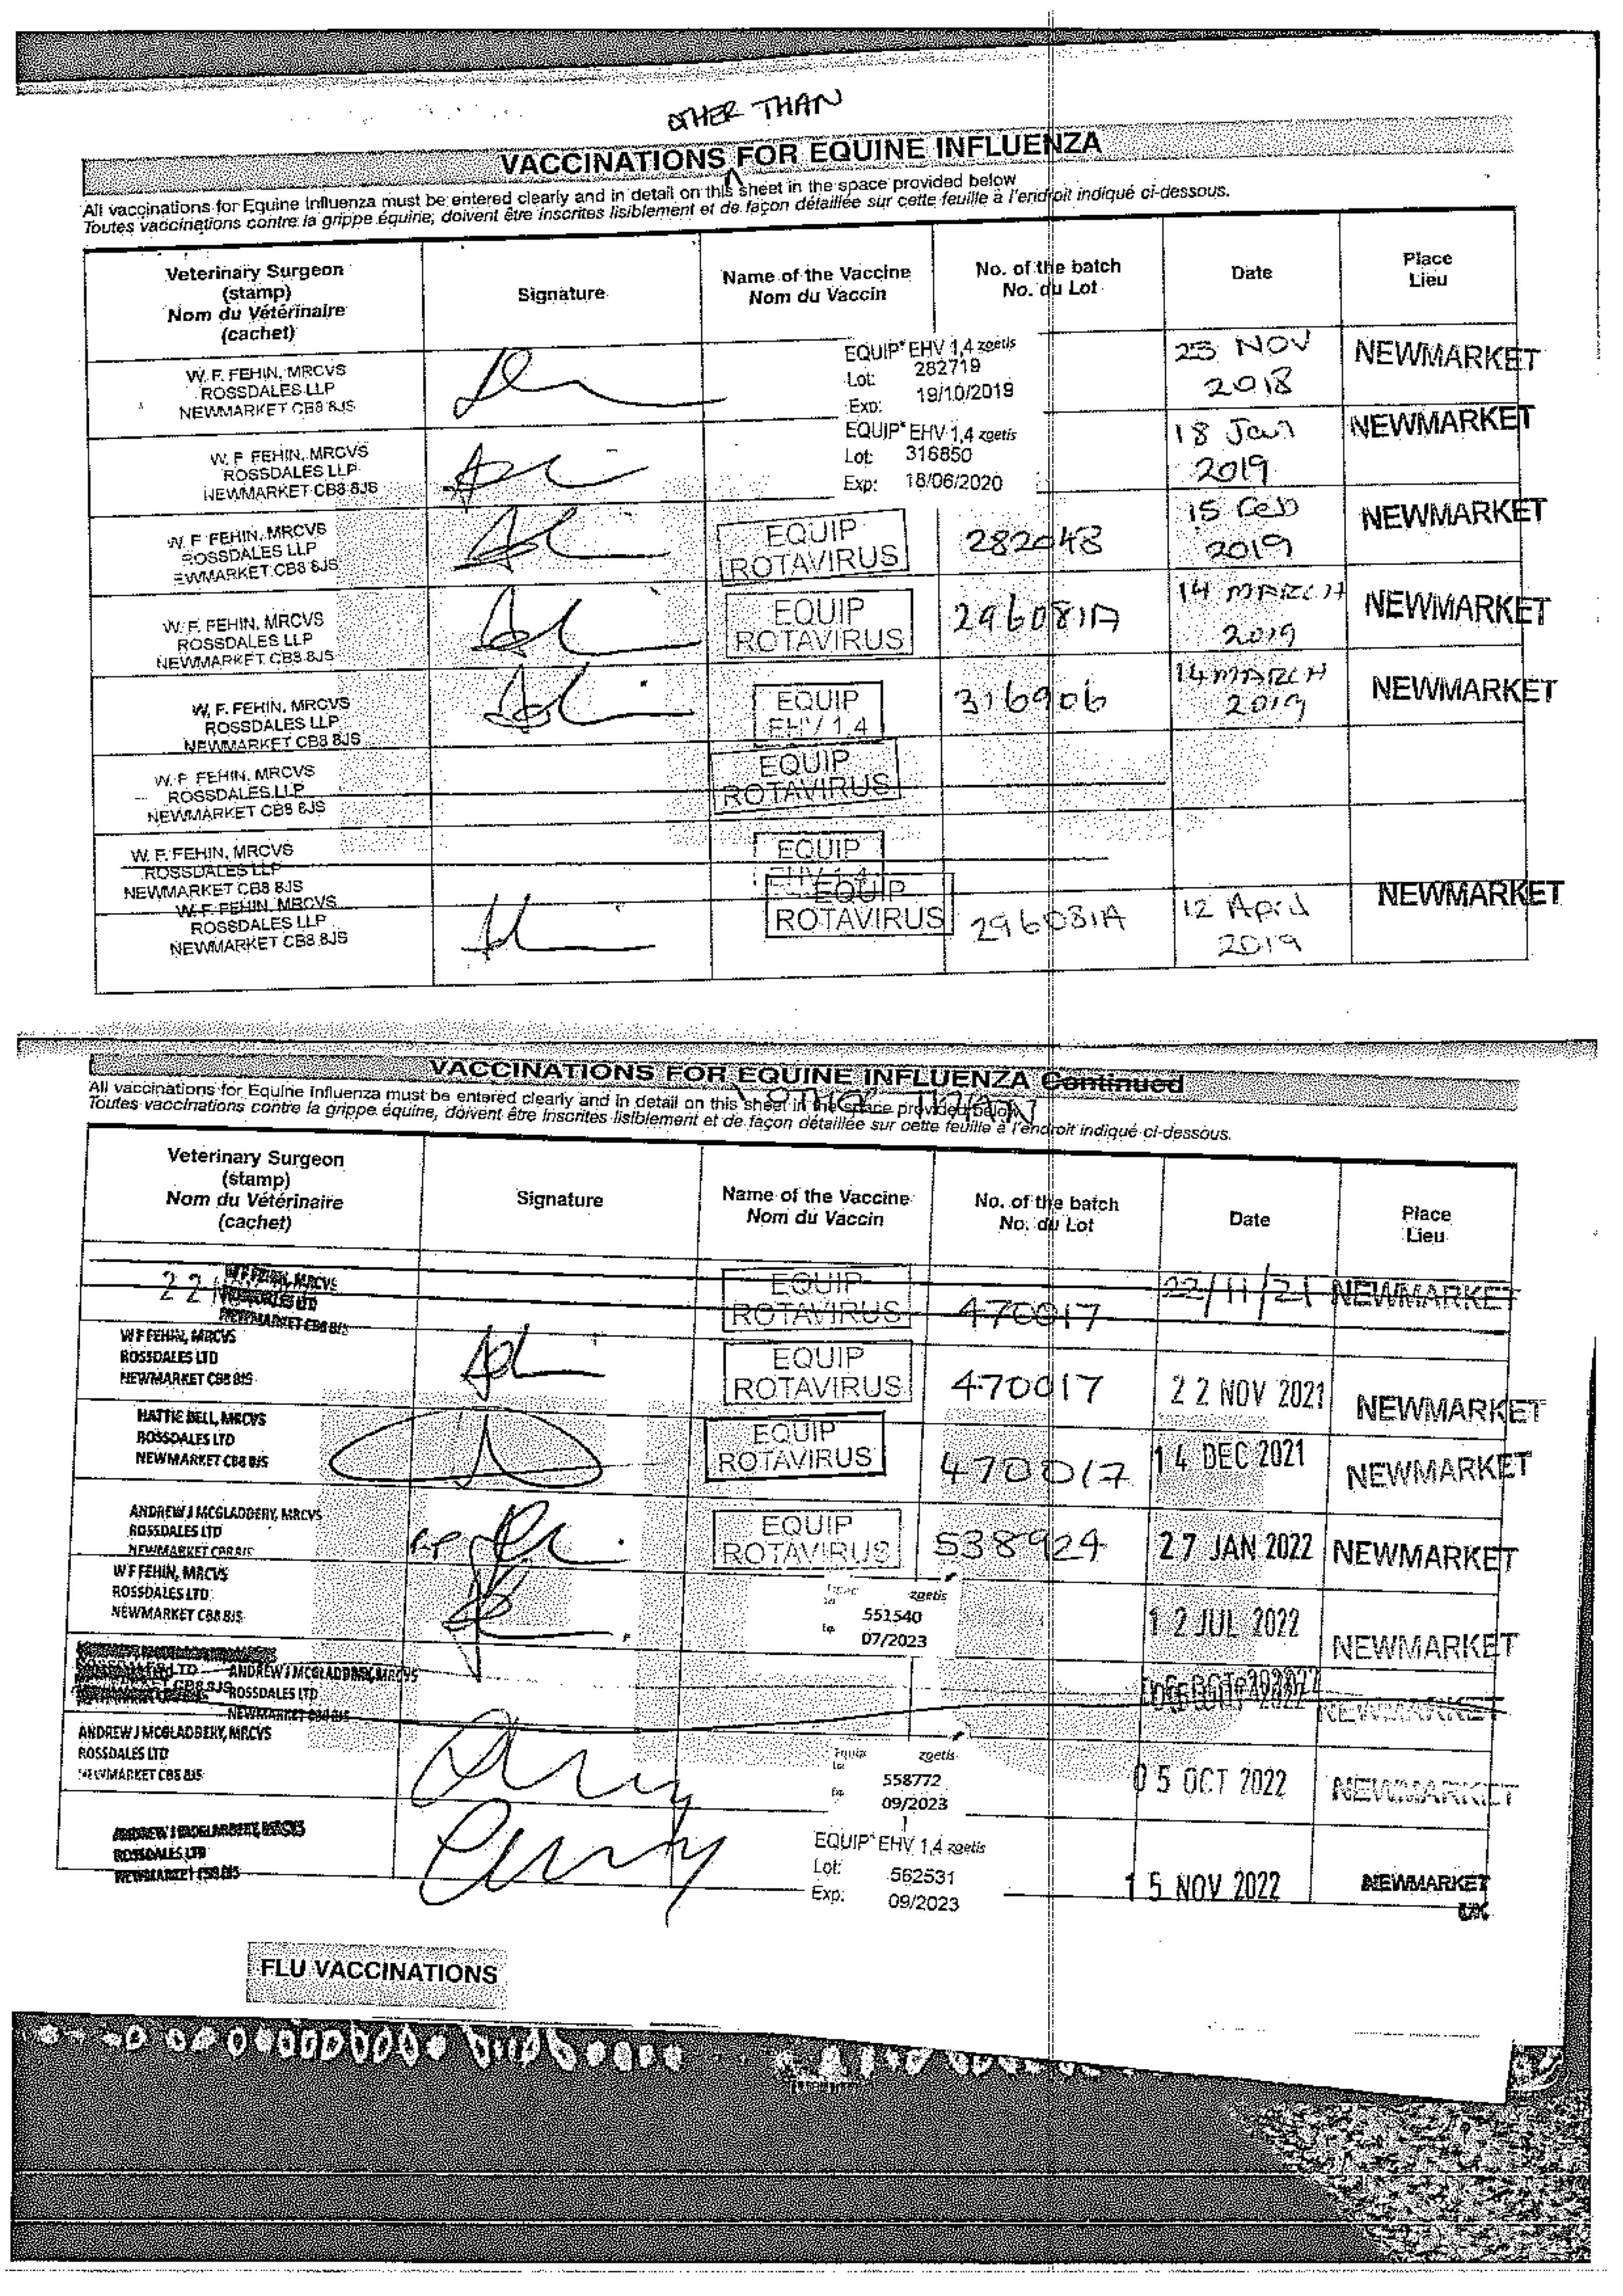 OTHER THAN
VACCINATIONS FOR EQUINE INFLUENZA
All vaccinations for Equine Influenza must be entered clearly and in detail on this sheet in the space provided below
Toutes vaccinations contre la grippe équine, doivent être inscrites lisiblement et de façon détaillée sur cette feuille à l'endroit indiqué ci-dessous.
Veterinary Surgeon
(stamp)
Nom du Vétérinaire
(cachet)
Signature
Name of the Vaccine
Nom du Vaccin
No. of the batch
No. du Lot
Date
Place
Lieu
W. F. FEHIN, MRCVS
ROSSDALES LLP
NEWMARKET CB8 8JS
EQUIP EHV 1,4 zoetis
Lot: 282719
Exp: 19/10/2019
23 NOV
2018
NEWMARKET
W. F. FEHIN, MRCVS
ROSSDALES LLP
NEWMARKET CB8 8JS
EQUIP EHV 1,4 zoetis
Lot: 316850
Exp: 18/06/2020
18 Jan
2019
NEWMARKET
W. F. FEHIN, MRCVS
ROSSDALES LLP
EWMARKET CB8 8JS
EQUIP
ROTAVIRUS
282043
15 Feb
2019
NEWMARKET
W. F. FEHIN, MRCVS
ROSSDALES LLP
NEWMARKET CB8 8JS
EQUIP
ROTAVIRUS
296081A
14 MARCH
2019
NEWMARKET
W. F. FEHIN, MRCVS
ROSSDALES LLP
NEWMARKET CB8 8JS
EQUIP
EHV 1,4
316906
14 MARCH
2019
NEWMARKET
W. F. FEHIN, MRCVS
ROSSDALES LLP
NEWMARKET CB8 8JS
EQUIP
ROTAVIRUS
W. F. FEHIN, MRCVS
ROSSDALES LLP
NEWMARKET CB8 8JS
EQUIP
EHV 1,4
W. F. FEHIN, MRCVS
ROSSDALES LLP
NEWMARKET CB8 8JS
EQUIP
ROTAVIRUS
296081A
12 April
2019
NEWMARKET
VACCINATIONS FOR EQUINE INFLUENZA Continued
OTHER THAN
All vaccinations for Equine Influenza must be entered clearly and in detail on this sheet in the space provided below
Toutes vaccinations contre la grippe équine, doivent être inscrites lisiblement et de façon détaillée sur cette feuille à l'endroit indiqué ci-dessous.
Veterinary Surgeon
(stamp)
Nom du Vétérinaire
(cachet)
Signature
Name of the Vaccine
Nom du Vaccin
No. of the batch
No. du Lot
Date
Place
Lieu
22
W F FEHIN, MRCVS
ROSSDALES LTD
NEWMARKET CB8 8JS
EQUIP
ROTAVIRUS
470017
22/11/21
NEWMARKET
W F FEHIN, MRCVS
ROSSDALES LTD
NEWMARKET CB8 8JS
EQUIP
ROTAVIRUS
470017
22 NOV 2021
NEWMARKET
HATTIE BELL, MRCVS
ROSSDALES LTD
NEWMARKET CB8 8JS
EQUIP
ROTAVIRUS
470017
14 DEC 2021
NEWMARKET
ANDREW J MCGLADDERY, MRCVS
ROSSDALES LTD
NEWMARKET CB8 8JS
EQUIP
ROTAVIRUS
538924
27 JAN 2022
NEWMARKET
W F FEHIN, MRCVS
ROSSDALES LTD
NEWMARKET CB8 8JS
zoetis
551540
07/2023
12 JUL 2022
NEWMARKET
ANDREW J MCGLADDERY, MRCVS
ROSSDALES LTD
NEWMARKET CB8 8JS
NEWMARKET
ANDREW J MCGLADDERY, MRCVS
ROSSDALES LTD
NEWMARKET CB8 8JS
Equip zoetis
558772
09/2023
05 OCT 2022
NEWMARKET
ANDREW J MCGLADDERY, MRCVS
ROSSDALES LTD
NEWMARKET CB8 8JS
EQUIP EHV 1,4 zoetis
Lot: 562531
Exp: 09/2023
15 NOV 2022
NEWMARKET
UK
FLU VACCINATIONS